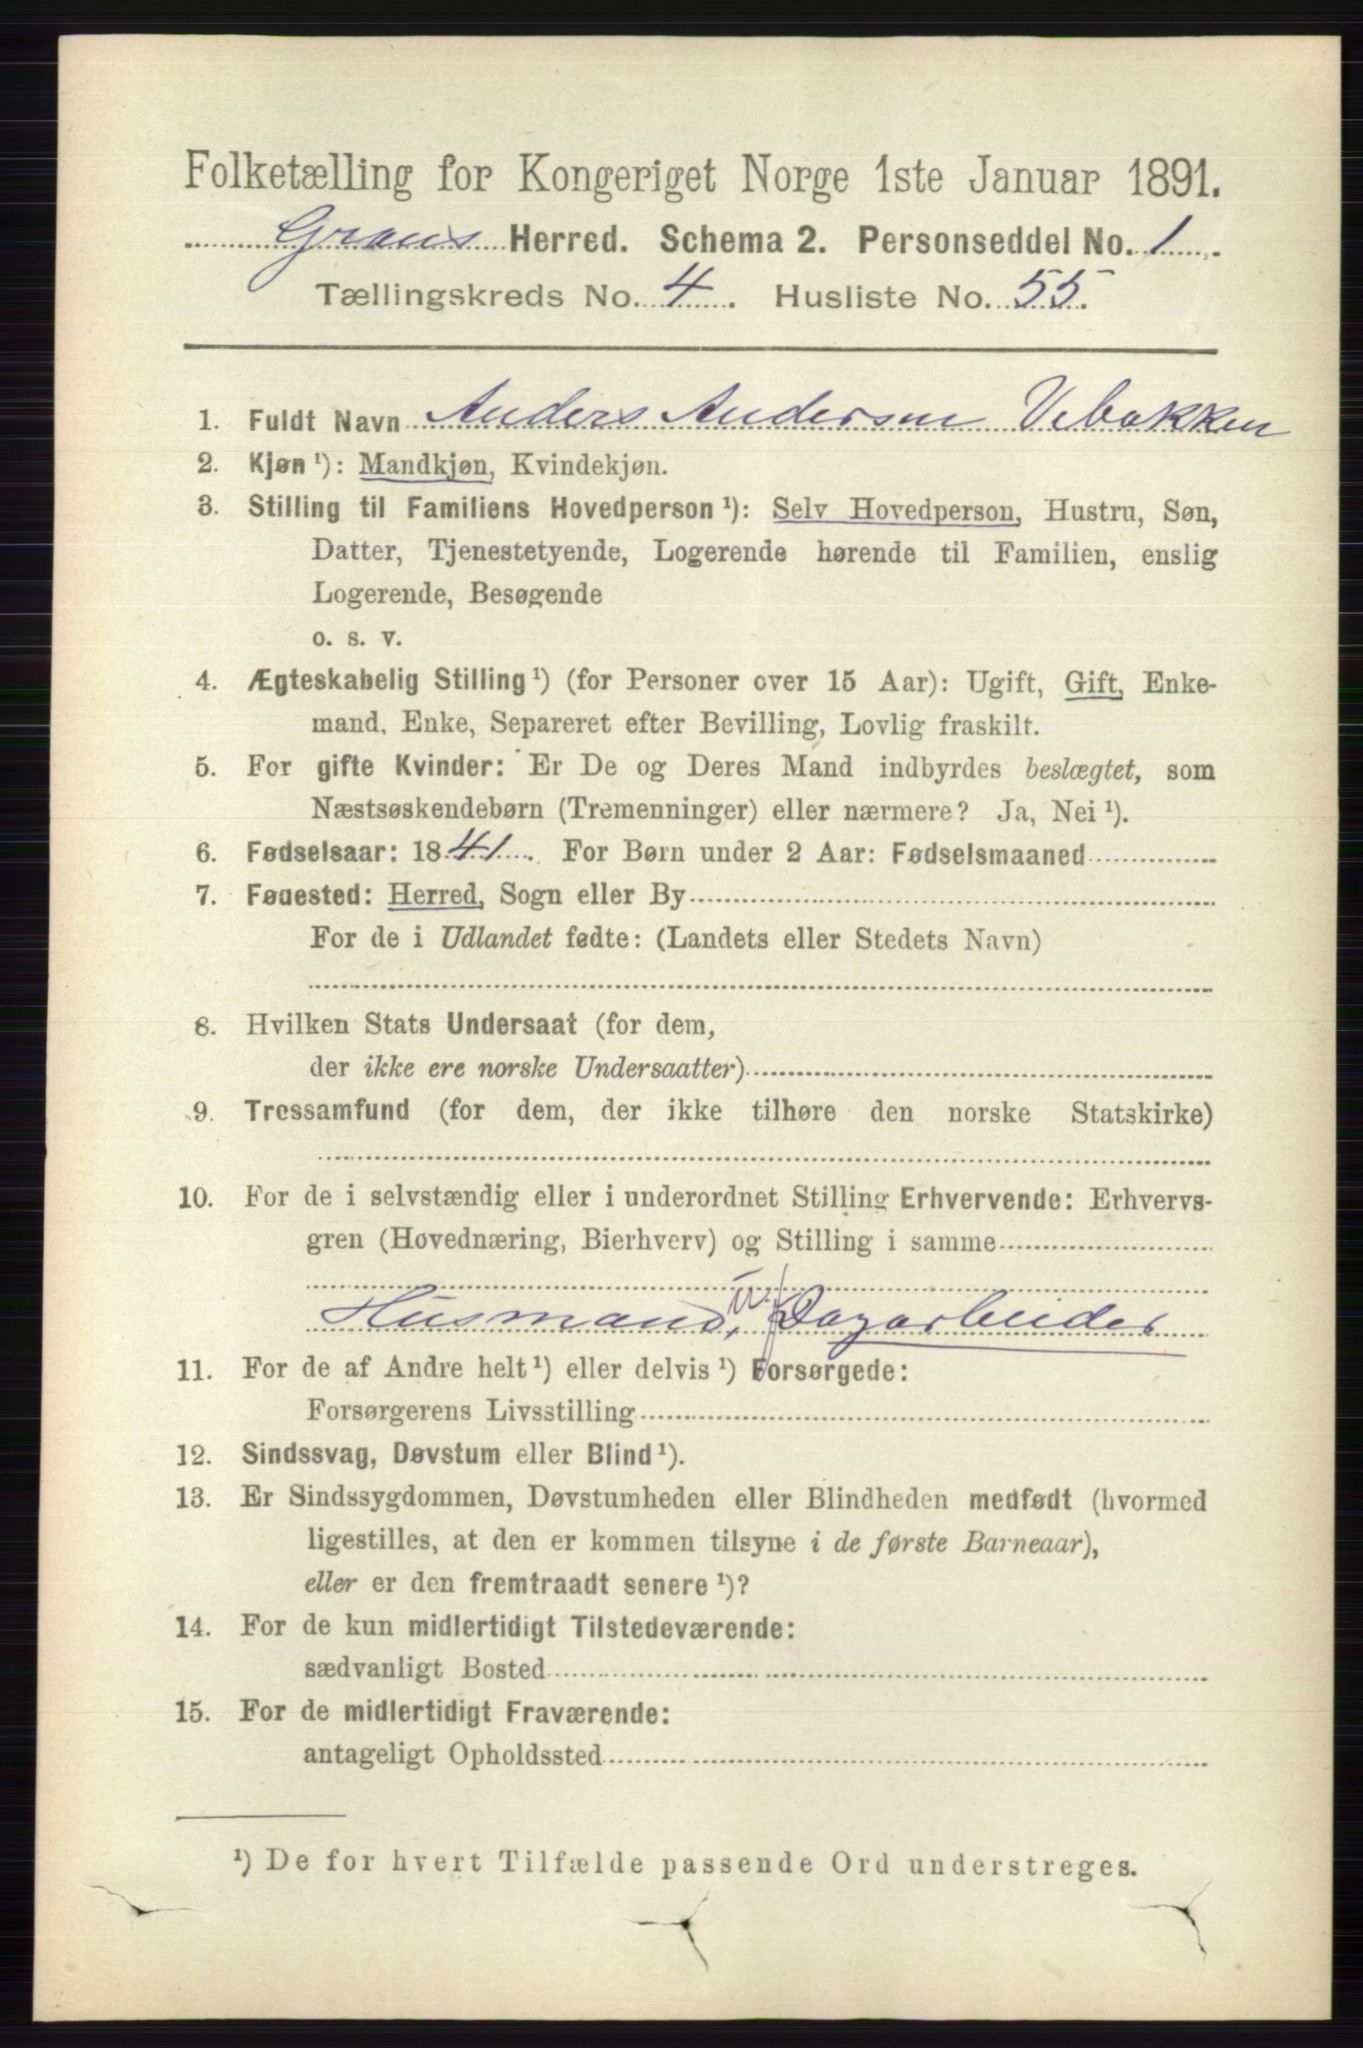 Folketælling for Kongeriget Norge 1ste Januar 1891.
Grans Herred. Schema 2. Personseddel No. 1.
Tællingskreds No. 4. Husliste No. 55.
1. Fuldt Navn Anders Andersen Vebakken
2. Kjøn ¹): Mandkjøn, Kvindekjøn.
3. Stilling til Familiens Hovedperson ¹): Selv Hovedperson, Hustru, Søn,
Datter, Tjenestetyende, Logerende hørende til Familien, enslig
Logerende, Besøgende
o. s. v.
4. Ægteskabelig Stilling ¹) (for Personer over 15 Aar): Ugift, Gift, Enke-
mand, Enke, Separeret efter Bevilling, Lovlig fraskilt.
5. For gifte Kvinder: Er De og Deres Mand indbyrdes beslægtet, som
Næstsøskendebørn (Tremenninger) eller nærmere? Ja, Nei ¹).
6. Fødselsaar: 1841. For Børn under 2 Aar: Fødselsmaaned
7. Fødested: Herred, Sogn eller By
For de i Udlandet fødte: (Landets eller Stedets Navn)
8. Hvilken Stats Undersaat (for dem,
der ikke ere norske Undersaatter)
9. Trossamfund (for dem, der ikke tilhøre den norske Statskirke)
10. For de i selvstændig eller i underordnet Stilling Erhvervende: Erhvervs-
gren (Hovednæring, Bierhverv) og Stilling i samme
Husmand, Dagarbeider
11. For de af Andre helt ¹) eller delvis ¹) Forsørgede:
Forsørgerens Livsstilling
12. Sindssvag, Døvstum eller Blind ¹).
13. Er Sindssygdommen, Døvstumheden eller Blindheden medfødt (hvormed
ligestilles, at den er kommen tilsyne i de første Barneaar),
eller er den fremtraadt senere ¹)?
14. For de kun midlertidigt Tilstedeværende:
sædvanligt Bosted
15. For de midlertidigt Fraværende:
antageligt Opholdssted
¹) De for hvert Tilfælde passende Ord understreges.